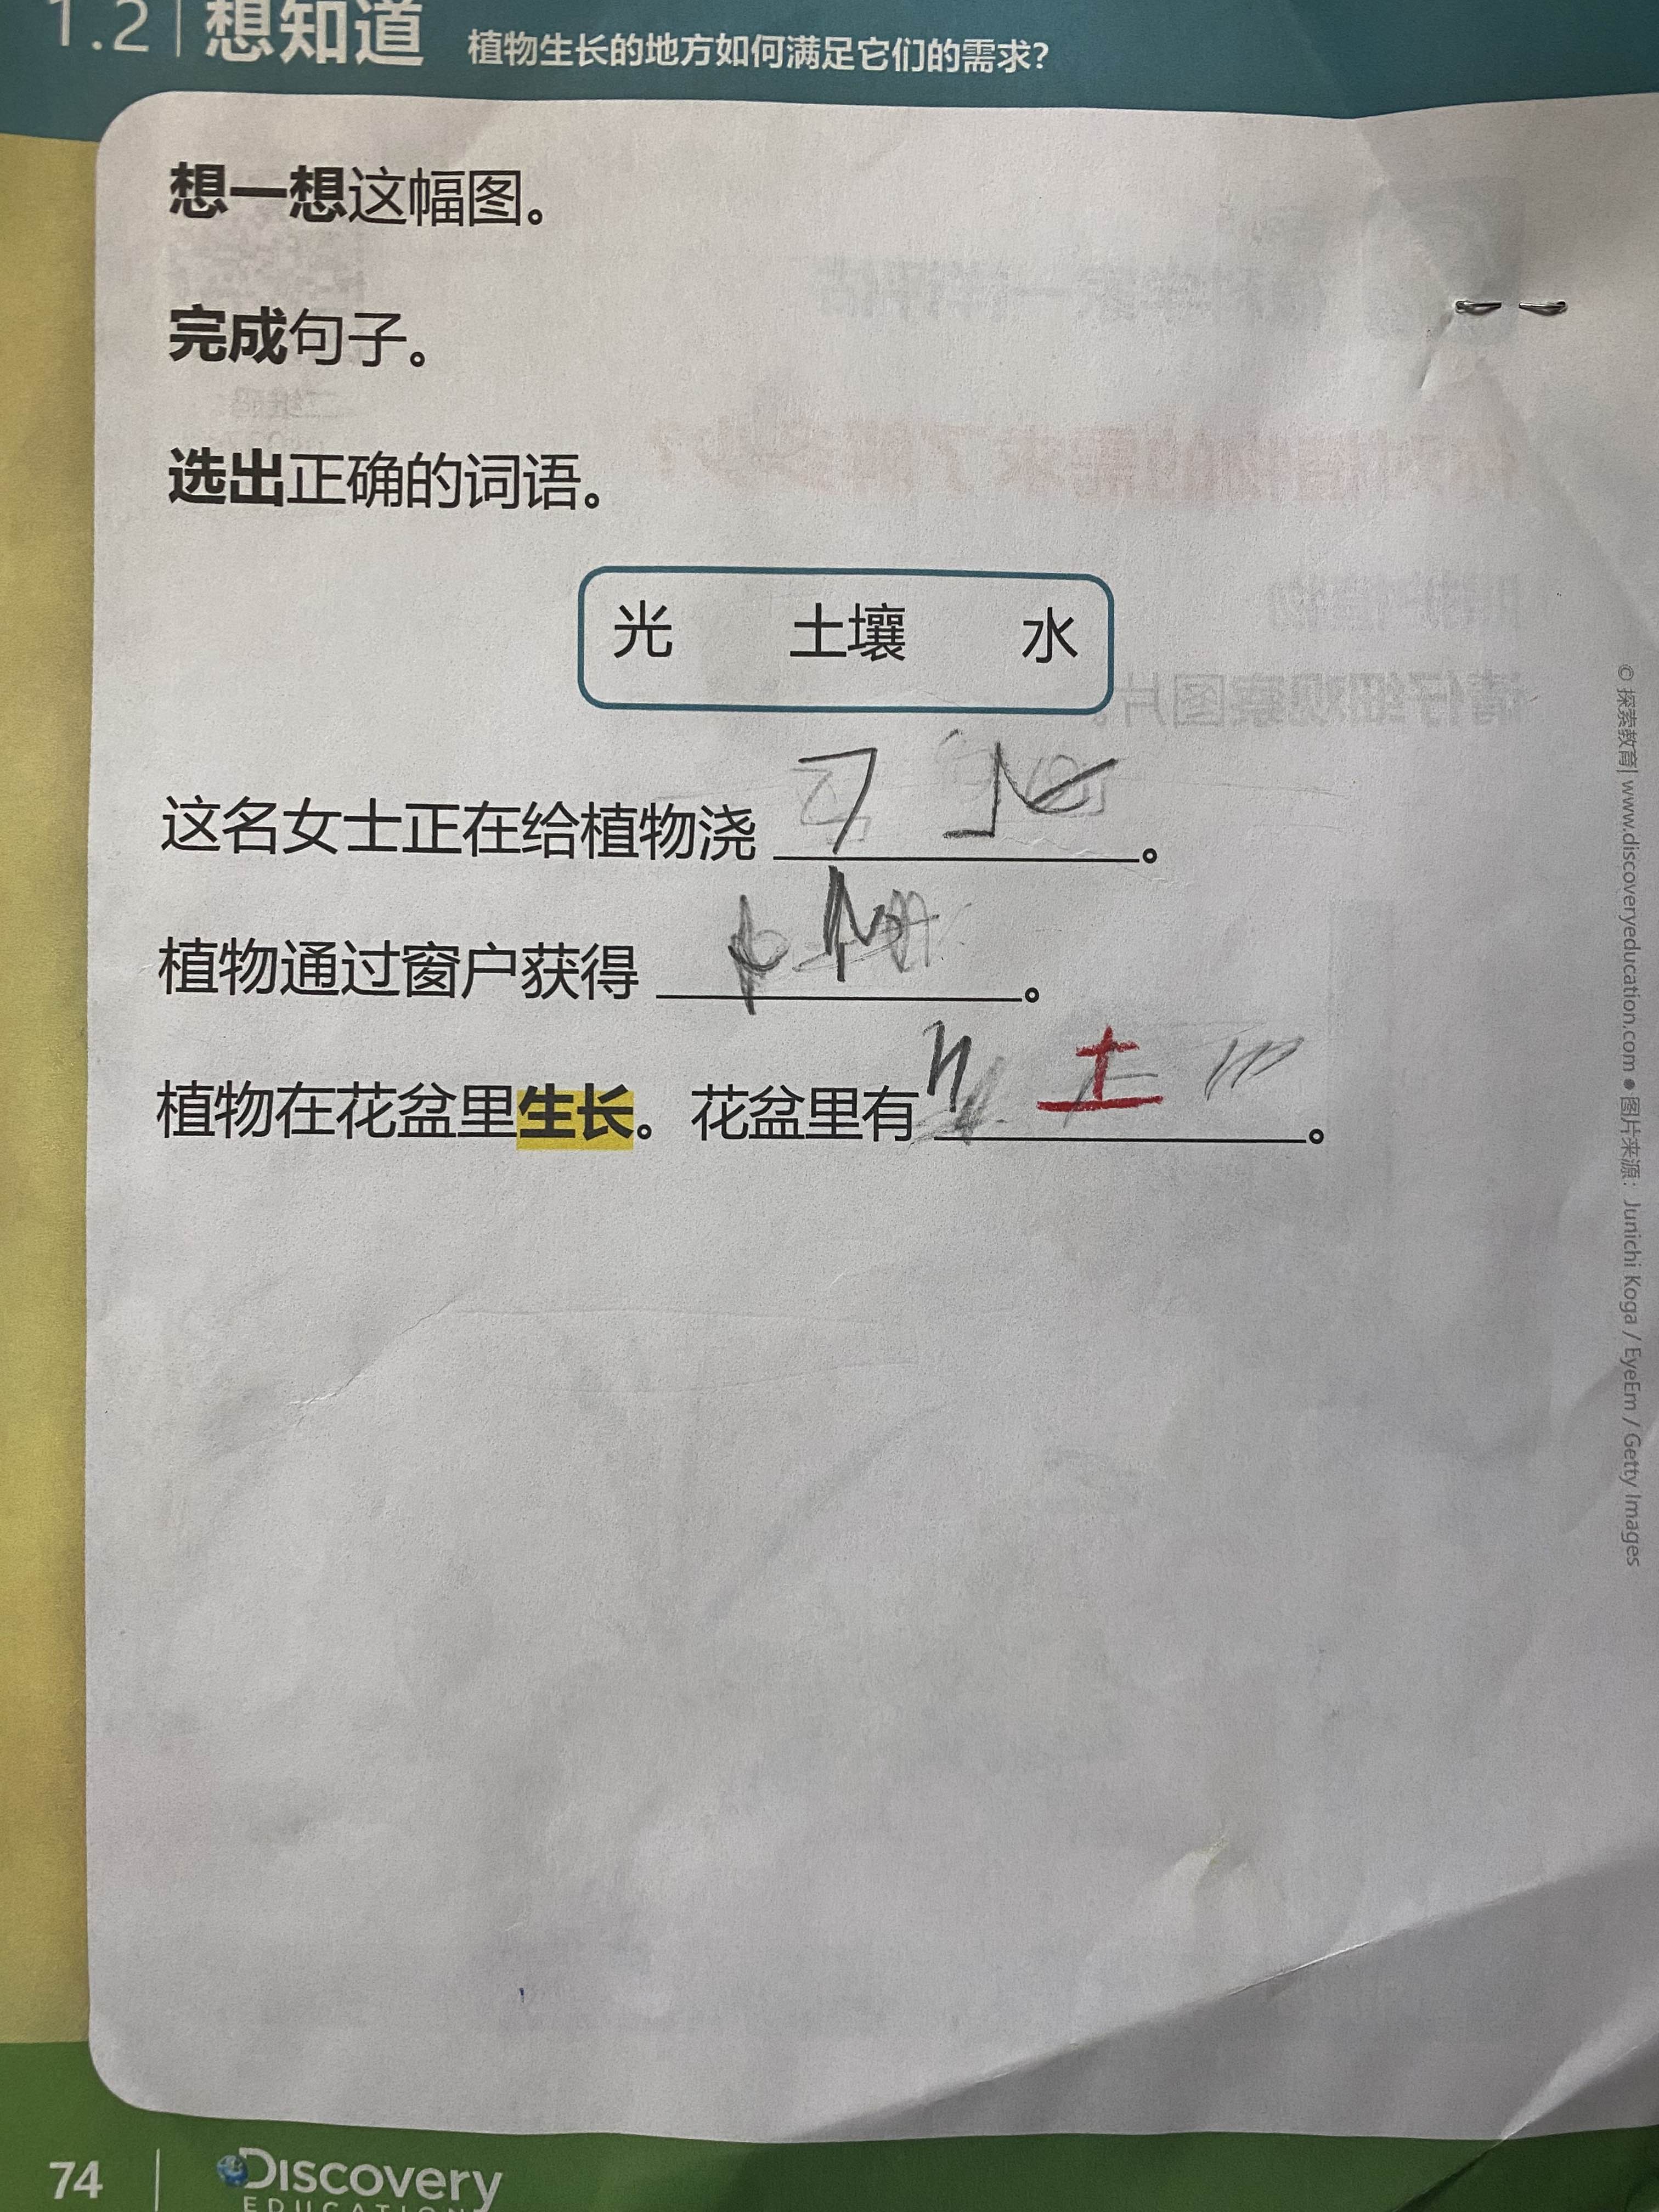 1.2 | 想知道 植物生长的地方如何满足它们的需求?
想一想这幅图。
完成句子。
选出正确的词语。
光 土壤 水
这名女士正在给植物浇 ____。
植物通过窗户获得 ____。
植物在花盆里生长。花盆里有 土 。
© 探索教育| www.discoveryeducation.com ● 图片来源: Junichi Koga / EyeEm / Getty Images
74 | DISCOVERY
EDUCATION